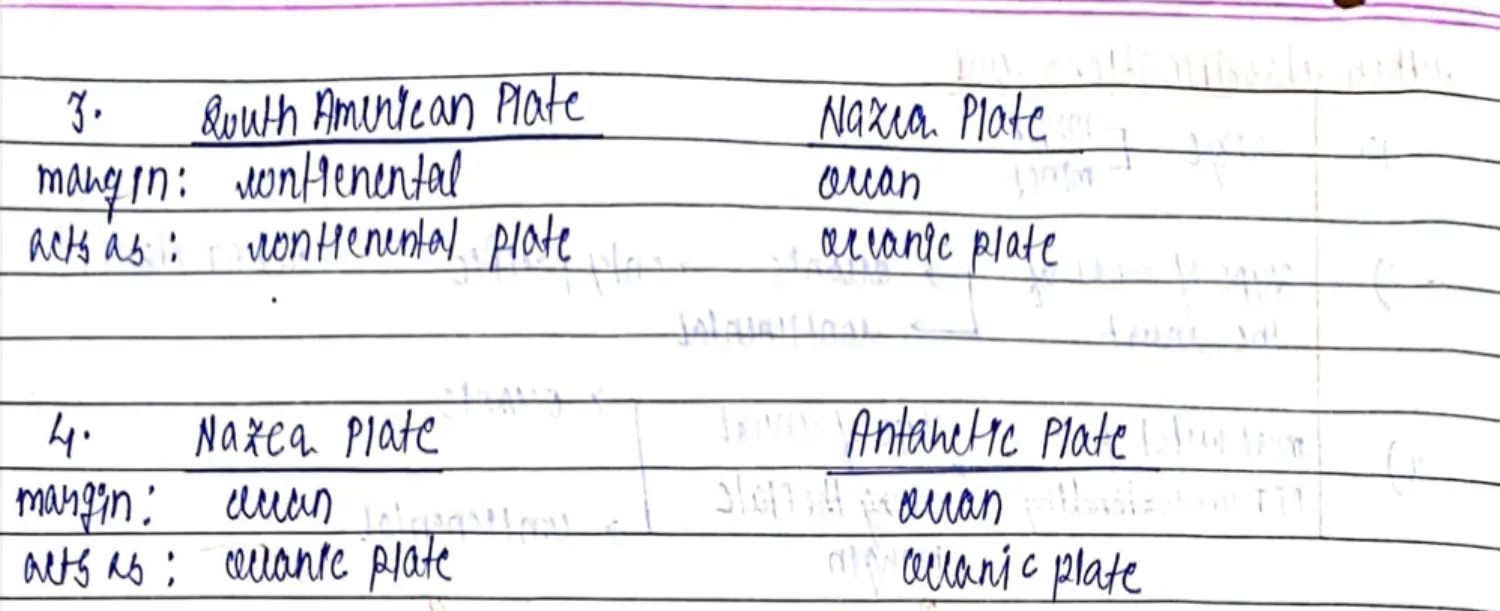 3. South American Plate Nazca Plate
margin: contienental ocean
acts as: contienental plate oceanic plate
4. Nazca Plate Antarctic Plate
margin: ocean ocean
acts as: oceanic plate oceanic plate